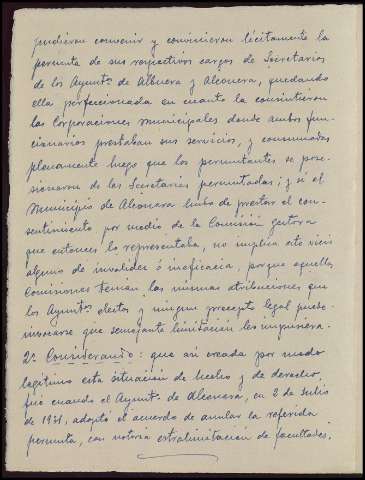 pudieron convenir y convinieron lícitamente la
permuta de sus respectivos cargos de Secretarios
de los Ayuntos de Albuera y Alconera, quedando
ella perfeccionada en cuanto la consintieron
las Corporaciones municipales donde ambos fun-
cionarios prestaban sus servicios, y consumadas
plenamente luego que los permutantes se pose-
sionaron de las Secretarías permutadas; y si el
Municipio de Alconera hubo de prestar el con-
sentimiento por medio de la Comisión gestora
que entonces lo representaba, no implica esto vicio
alguno de invalidez ó ineficacia, porque aquellas
Comisiones tenían las mismas atribuciones que
los Ayuntos electos y ningun precepto legal puede
invocarse que semejante limitación les impusiera.
2º Considerando: que así creada por modo
legítimo esta situación de hecho y de derecho,
fué cuando el Ayunto de Alconera, en 2 de Julio
de 1931, adoptó el acuerdo de anular la referida
permuta, con notoria extralimitación de facultades.